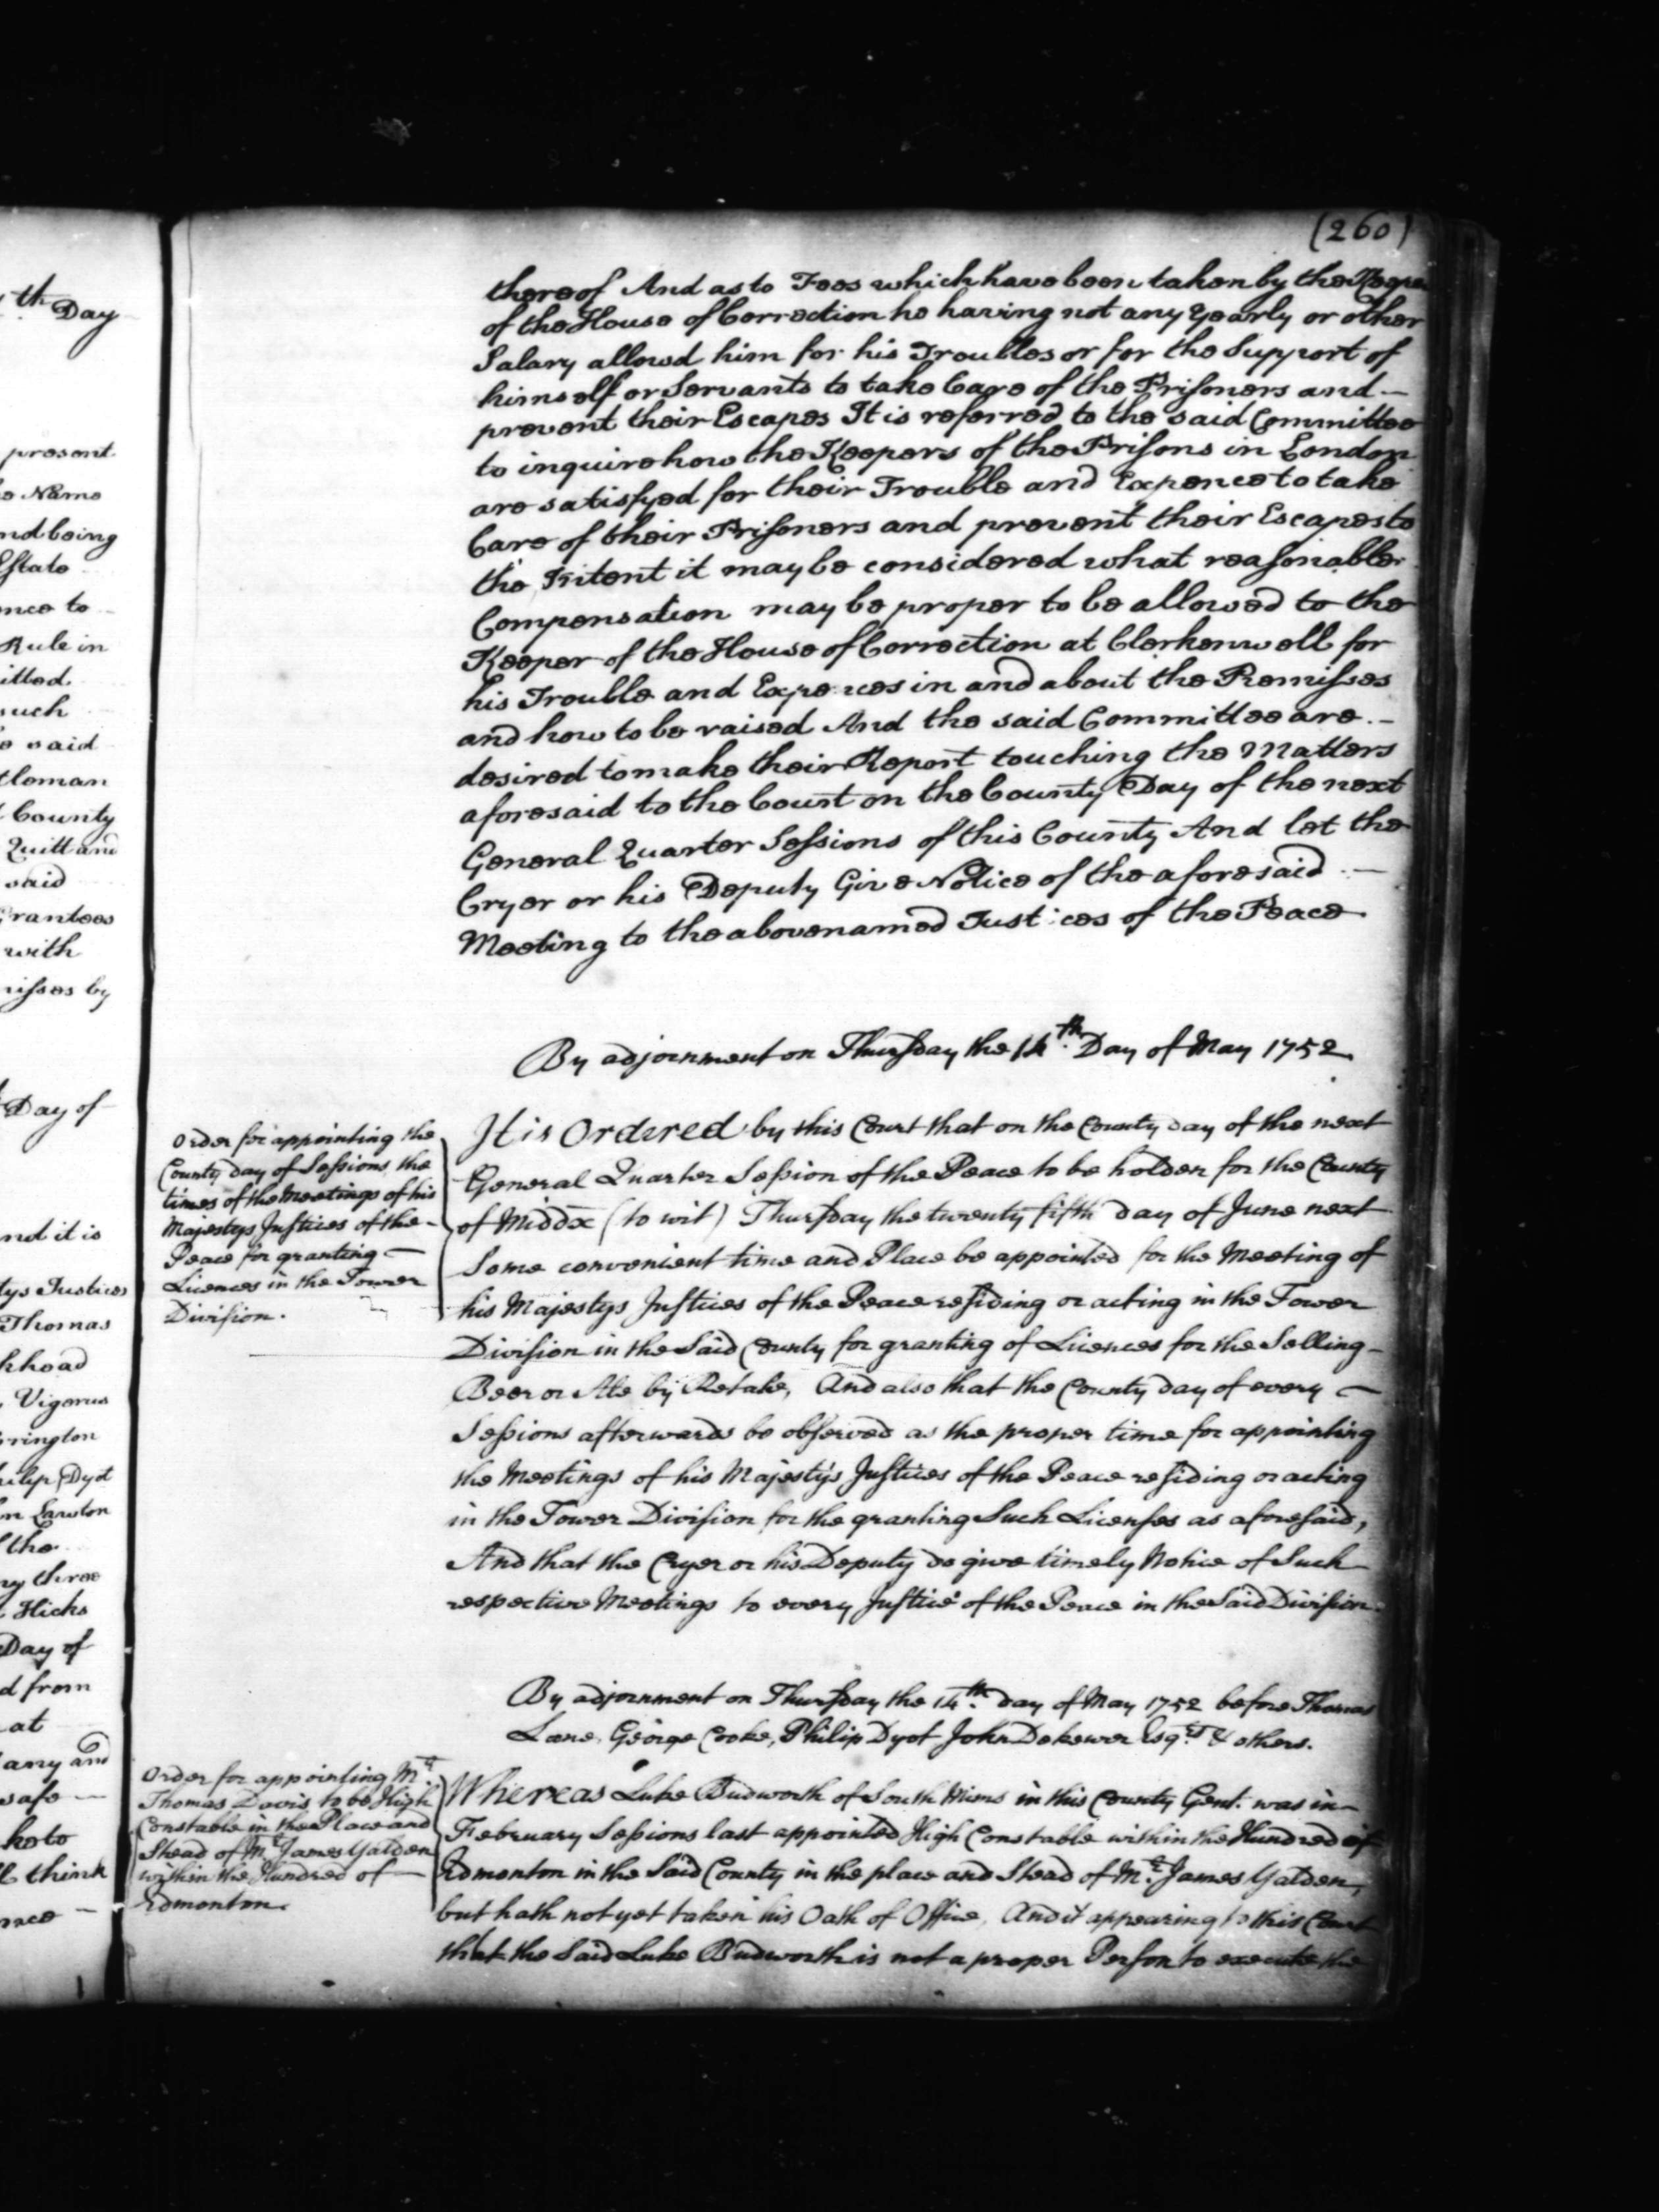 (260)
thereof And as to Fees which have been taken by the Keeper
of the House of Correction he having not any Yearly or other
Salary allowd him for his Troubles or for the Support of
himself or Servants to take Care of the Prisoners and -
prevent their Escapes It is referred to the said Committee
to inquire how the Keepers of the Prisons in London
are satisfyed for their Trouble and Expence to take
Care of their Prisoners and prevent their Escapes to
the Intent it may be considered what reasonable
Compensation may be proper to be allowed to the
Keeper of the House of Correction at Clerkenwell for
his Trouble and Expences in and about the Premisses
and how to be raised And the said Committee are -
desired to make their Report touching the Matters
aforesaid to the Court on the County Day of the next
General Quarter Sessions of this County And let the
Cryer or his Deputy Give Notice of the aforesaid -
Meeting to the abovenamed Justices of the Peace.
By adjornment on Thursday the 14th. Day of May 1752.
Order for appointing the
County day of Sessions the
times of the Meetings of his
Majestys Justices of the -
Peace for granting -
Licences in the Tower
Division.
It is Ordered by this Court that on the County day of the next
General Quarter Session of the Peace to be holden for the County
of Middx (to wit) Thursday the twenty fifth day of June next
Some convenient time and Place be appointed for the Meeting of
his Majestys Justices of the Peace residing or acting in the Tower
Division in the Said County for granting of Licences for the Selling -
Beer or Ale by Retale, And also that the County day of every -
Sessions afterwards be observed as the proper time for appointing
the Meetings of his Majesty's Justices of the Peace residing or acting
in the Tower Division for the granting Such Licenses as aforesaid,
And that the Cryer or his Deputy do give timely Notice of Such
respective Meetings to every Justice of the Peace in the Said Division.
By adjornment on Thursday the 14th. day of May 1752 before Thomas
Lane, George Cooke, Philip Dyot John Dekewer Esqrs. & others.
Order for appointing Mr.
Thomas Davis to be High
Constable in the Place and
Stead of Mr. James Yalden
within the Hundred of -
Edmonton.
Whereas Luke Budworth of South Mims in this County Gent. was in -
February Sessions last appointed High Constable within the Hundred of
Edmonton in the Said County in the place and Stead of Mr. James Yalden,
but hath not yet taken his Oath of Office, And it appearing to this Court
that the Said Luke Budworth is not a proper Person to execute the
th Day
present
Name
and being
Estate
to
Rule in
such
said
County
Quitt and
said
Grantees
with
by
Day of
it is
Justices
Thomas
Vigorus
Dyot
Lawton
the
three
Hicks
Day of
from
at
any and
safe -
to
think